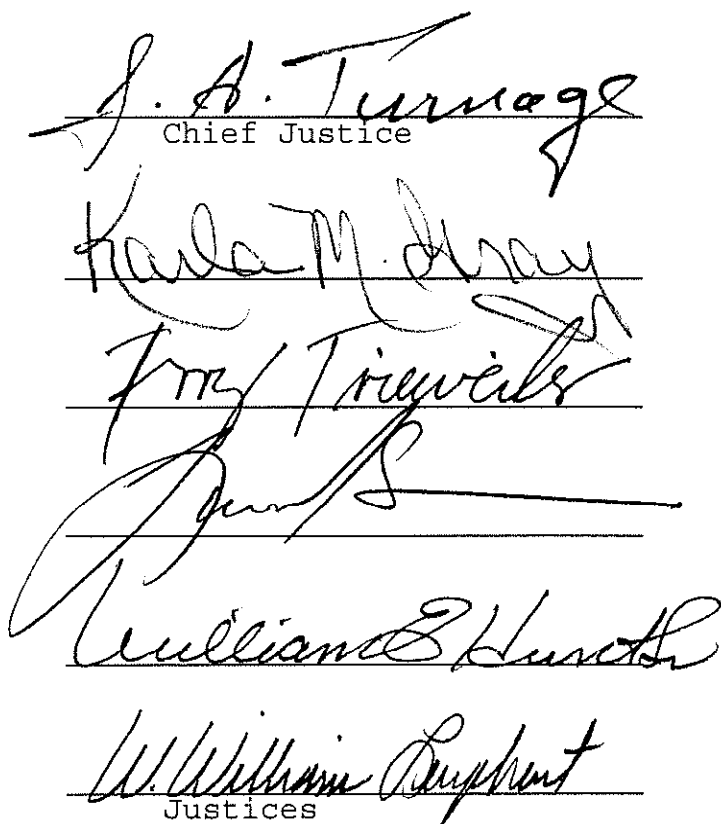 J. A. Turnage
Chief Justice
Karla M. Gray
Terry Trieweiler
William E Hunt Sr
W. William Leaphart
Justices